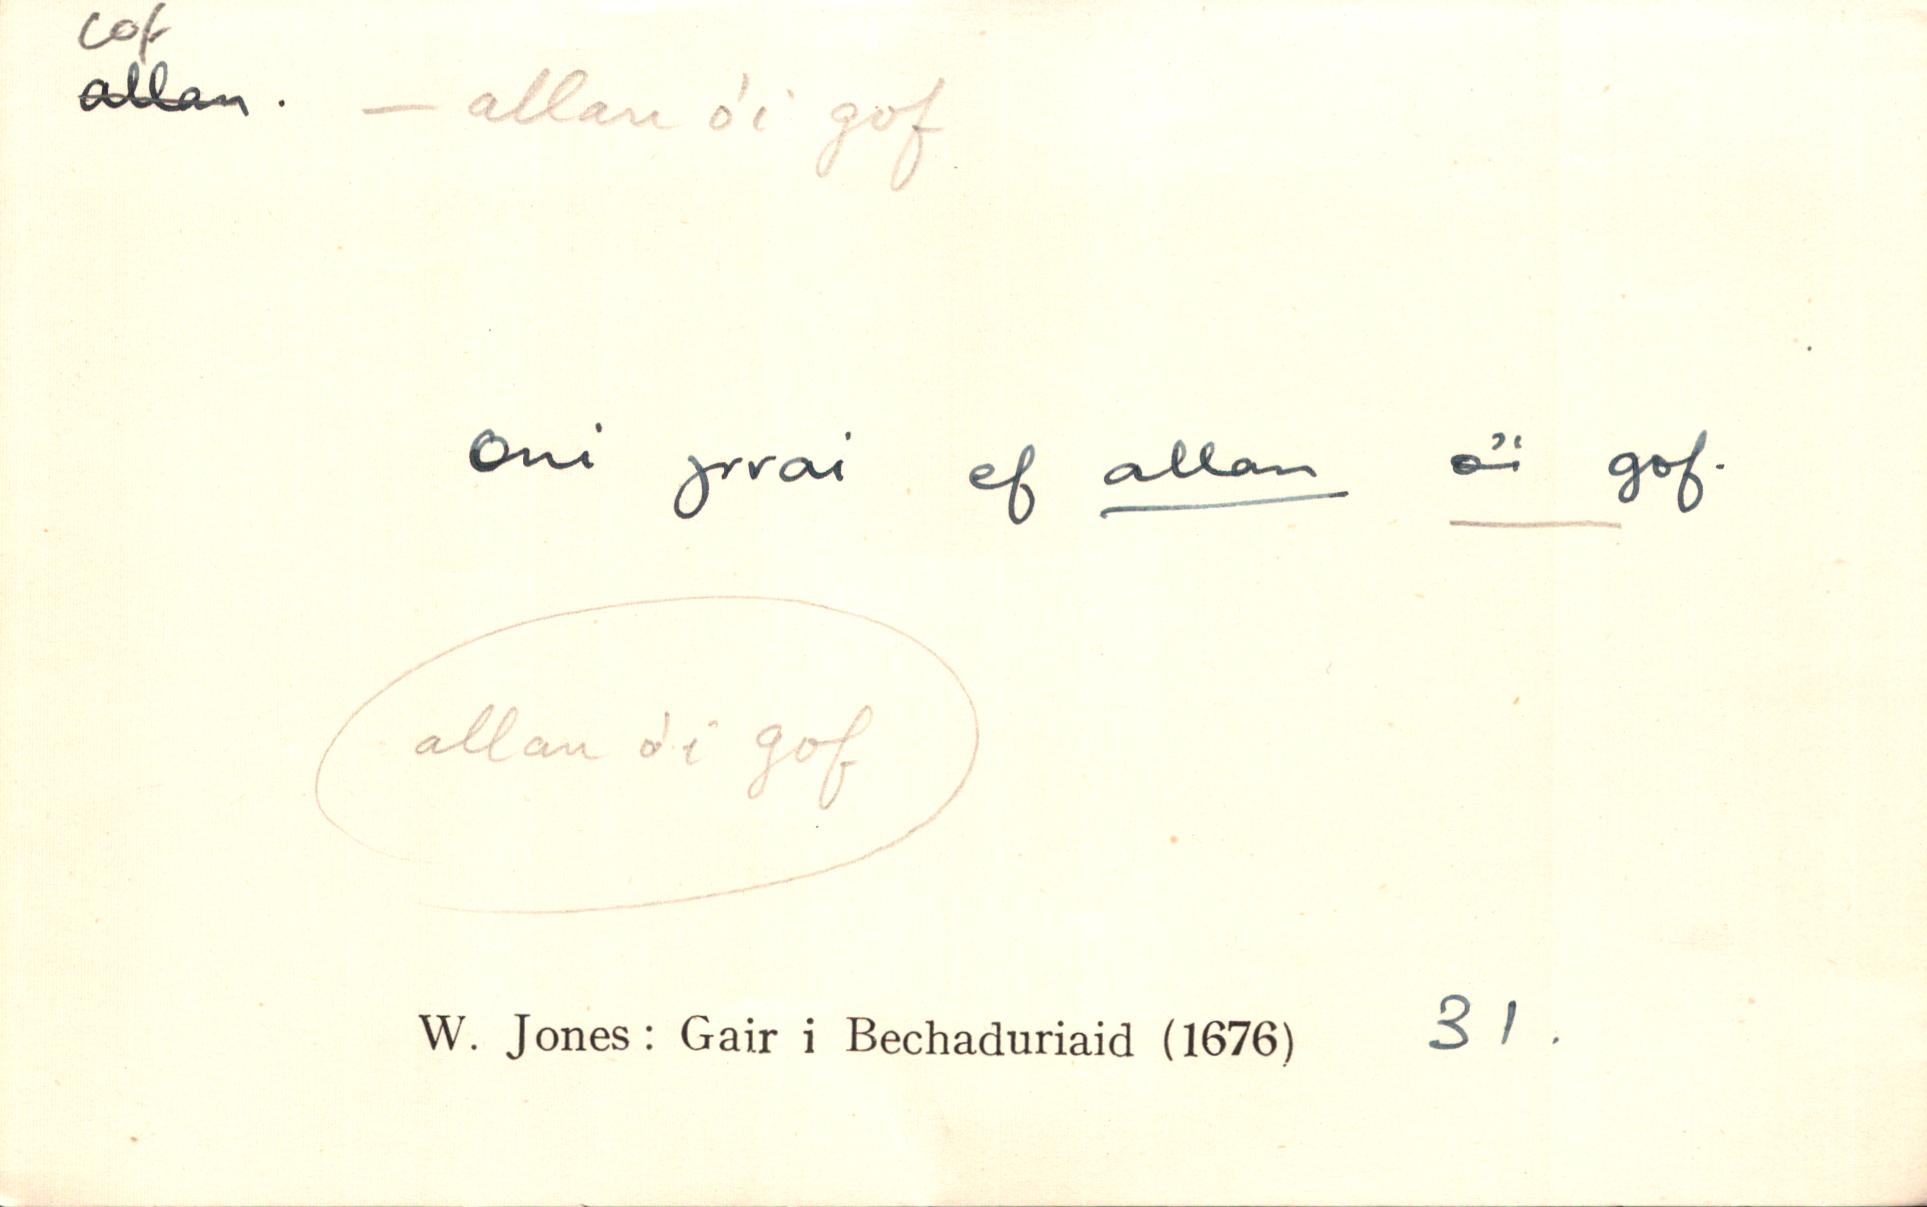 cof
allan. — allan o'i gof
Oni yrrai ef allan o'i gof.
allan o'i gof
W. Jones: Gair i Bechaduriaid (1676) 31.